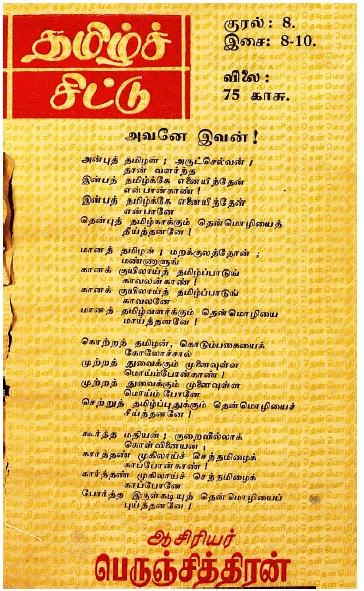 தமிழ்ச்
சிட்டு
குரல் : 8.
இசை : 8-10.
விலை :
75 காசு.
அவனே இவன் !
அன்புத் தமிழன் ; அருட்செல்வன் ;
தான் வளர்ந்த
இன்பத் தமிழ்க்கே எனையீந்தேன்
என்பான்காண் !
இன்பத் தமிழ்க்கே எனையீந்தேன்
என்பானே
தென்புத் தமிழ்காக்கும் தென்மொழியைத்
தீய்த்தனனே !
மானத் தமிழன் ; மறக்குலத்தோன் ;
மண்ணாளுங்
கானக் குயிலாய்த் தமிழ்ப்பாடுங்
காவலன்காண் !
கானக் குயிலாய்த் தமிழ்ப்பாடுங்
காவலனே
மானத் தமிழ்வளர்க்கும் தென்மொழியை
மாய்த்தனனே !
கொற்றத் தமிழன், கொடும்பகையைக்
கோலோச்சால்
முற்றத் துவைக்கும் முனைவுள்ள
மொய்ம்போன்காண் !
முற்றத் துவைக்கும் முனைவுள்ள
மொய்ம் போனே
செற்றுத் தமிழ்ப்புதுக்கும் தென்மொழியைச்
சீய்த்தனனே !
கூர்த்த மதியன் ; குறைவில்லாக்
கொள்வினையன் ;
கார்த்தண் முகிலாய்ச் செந்தமிழைக்
காப்போன்காண் !
கார்த்தண் முகிலாய்ச் செந்தமிழைக்
காப்போனே
போர்த்த இருள்கடியுந் தென்மொழியைப்
புய்த்தனனே !
ஆசிரியர்
பெருஞ்சித்திரன்